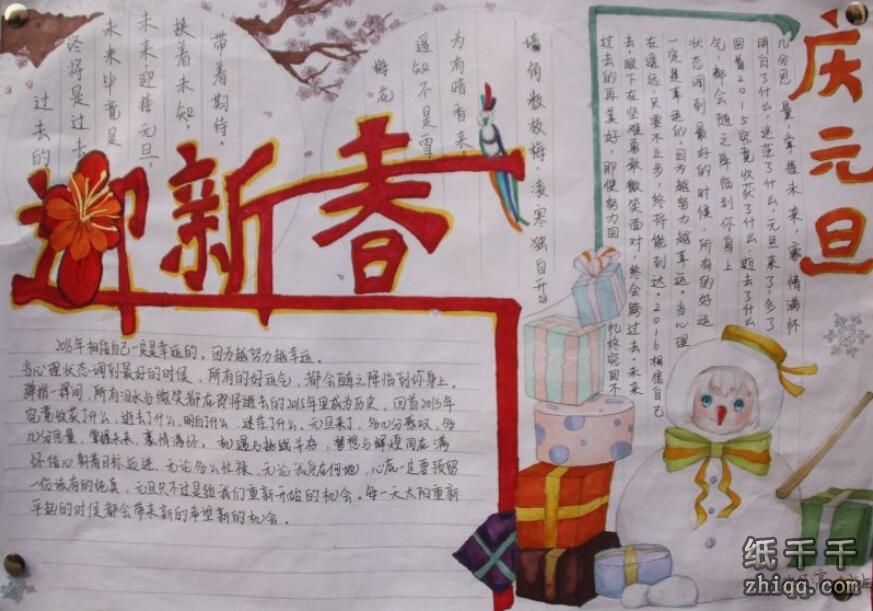 庆元旦
迎新春
墙角数枝梅，凌寒独自开
为有暗香来
遥知不是雪
梅花
带着期待，
扶着未知，
未来，迎接元旦，
未来毕竟是
终将是过去
过去的
几分思量，掌握未来，豪情满怀
明白了什么，迷茫了什么，元旦来了，多了
回首2015究竟收获了什么，逝去了什么
气，都会随之降临到你身上
状态调到最好的时候，所有的好运
一定是幸运的，因为越努力越幸运。当心理
在遥远，只要不止步，终将能到达。2016相信自己
去，眼下在坚难勇敢微笑面对，终会跨过去。未来
过去的再美好，即使努力回
2016年相信自己一定是幸运的，因为越努力越幸运。
当心理状态调到最好的时候，所有的好运气，都会随之降临到你身上。
薄指一瞬间，所有泪水与微笑都在即将逝去的2015年里成为历史，回首2015年
究竟收获了什么，逝去了什么，明白了什么，迷茫了什么，元旦来了，多几分感叹，多
几分思量，掌握未来，豪情满怀，机遇与挑战并存，梦想与辉煌同在，满
怀信心朝着目标迈进，无论多么忙碌，无论我身在何地，心底一定要预留
一份该有的纯真，元旦只不过是给我们重新开始的机会。每一天太阳重新
升起的时候都会带来新的希望新的机会。
纸千千
zhiqq.com